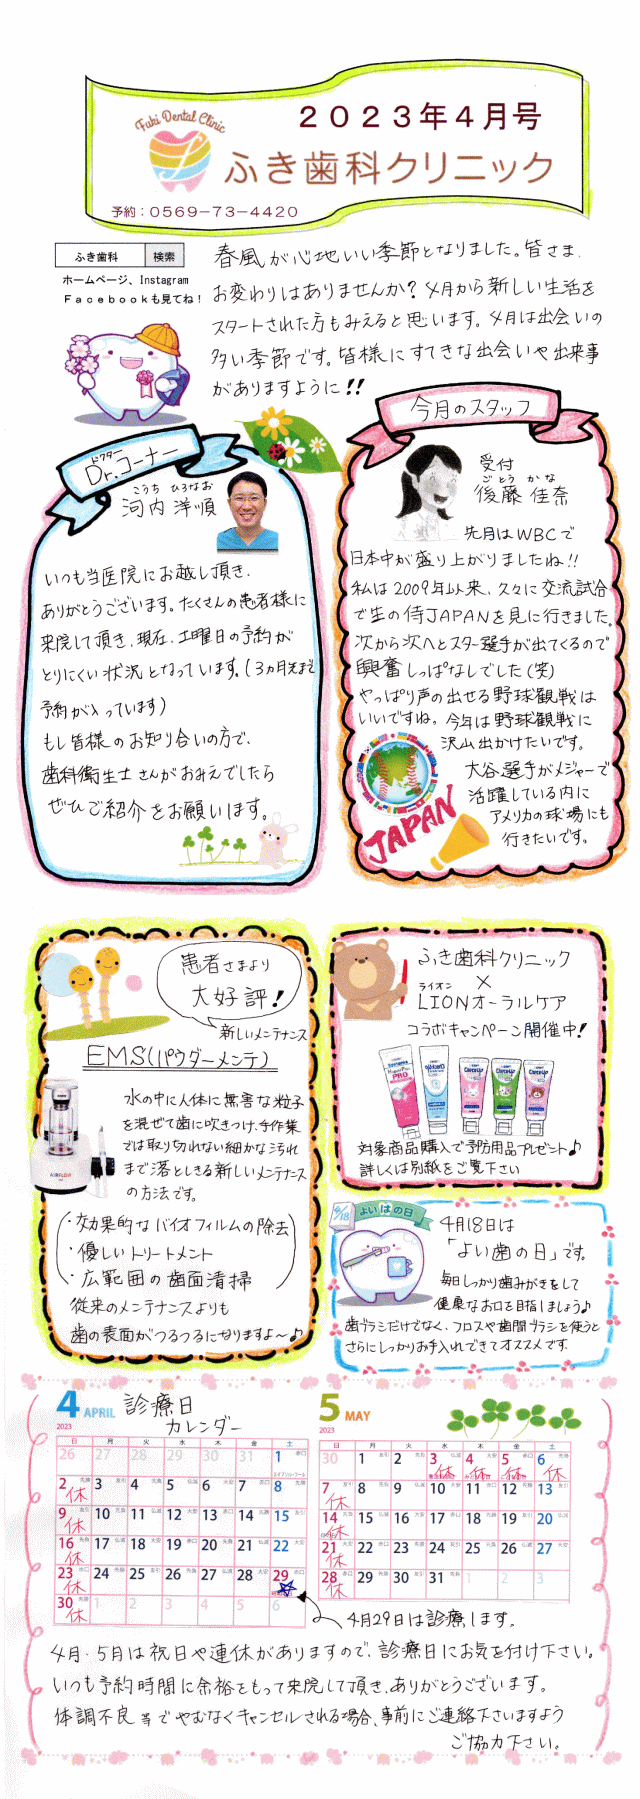 Fuki Dental Clinic
２０２３年４月号
ふき歯科クリニック
予約：０５６９－７３－４４２０
ふき歯科 検索
ホームページ、Instagram
Ｆａｃｅｂｏｏｋも見てね！
春風が心地いい季節となりました。皆さま、
お変わりはありませんか？4月から新しい生活を
スタートされた方もみえると思います。4月は出会いの
多い季節です。皆様にすてきな出会いや出来事
がありますように!!
ドクター
Dr.コーナー
こうち ひろなお
河内 洋順
いつも当医院にお越し頂き、
ありがとうございます。たくさんの患者様に
来院して頂き、現在、土曜日の予約が
とりにくい状況となっています。(3ヵ月先まで
予約が入っています)
もし皆様のお知り合いの方で、
歯科衛生士さんがおみえでしたら
ぜひご紹介をお願いします。
今月のスタッフ
受付
ごとう かな
後藤 佳奈
先月はWBCで
日本中が盛り上がりましたね!!
私は2009年以来、久々に交流試合
で生の侍JAPANを見に行きました。
次から次へとスター選手が出てくるので
興奮しっぱなしでした(笑)
やっぱり声の出せる野球観戦は
いいですね。今年は野球観戦に
沢山出かけたいです。
大谷選手がメジャーで
活躍している内に
アメリカの球場にも
行きたいです。
JAPAN
患者さまより
大好評!
新しいメンテナンス
EMS(パウダーメンテ)
水の中に人体に無害な粒子
を混ぜて歯に吹きつけ、手作業
では取り切れない細かな汚れ
まで落としきる新しいメンテナンス
の方法です。
・効果的なバイオフィルムの除去
・優しいトリートメント
・広範囲の歯面清掃
従来のメンテナンスよりも
歯の表面がつるつるになりますよ〜♪
AIRFLOW
ふき歯科クリニック
×
ライオン
LIONオーラルケア
コラボキャンペーン開催中!
対象商品購入で予防用品プレゼント♪
詳しくは別紙をご覧下さい
4/18
よいはの日
4月18日は
「よい歯の日」です。
毎日しっかり歯みがきをして
健康なお口を目指しましょう♪
歯ブラシだけでなく、フロスや歯間ブラシを使うと
さらにしっかりお手入れできてオススメです。
4 APRIL 診療日
カレンダー
2023
日 月 火 水 木 金 土
26 27 28 29 30 31 1
2 休 3 4 5 6 7 8
9 休 10 11 12 13 14 15
16 休 17 18 19 20 21 22
23 休 24 25 26 27 28 29
30 休 1 2 3 4 5 6
5 MAY
2023
日 月 火 水 木 金 土
30 1 2 3 休 4 休 5 休 6 休
7 休 8 9 10 11 12 13
14 休 15 16 17 18 19 20
21 休 22 23 24 25 26 27
28 休 29 30 31 1 2 3
4月29日は診療します。
4月・5月は祝日や連休がありますので、診療日にお気を付け下さい。
いつも予約時間に余裕をもって来院して頂き、ありがとうございます。
体調不良等でやむなくキャンセルされる場合、事前にご連絡下さいますよう
ご協力下さい。